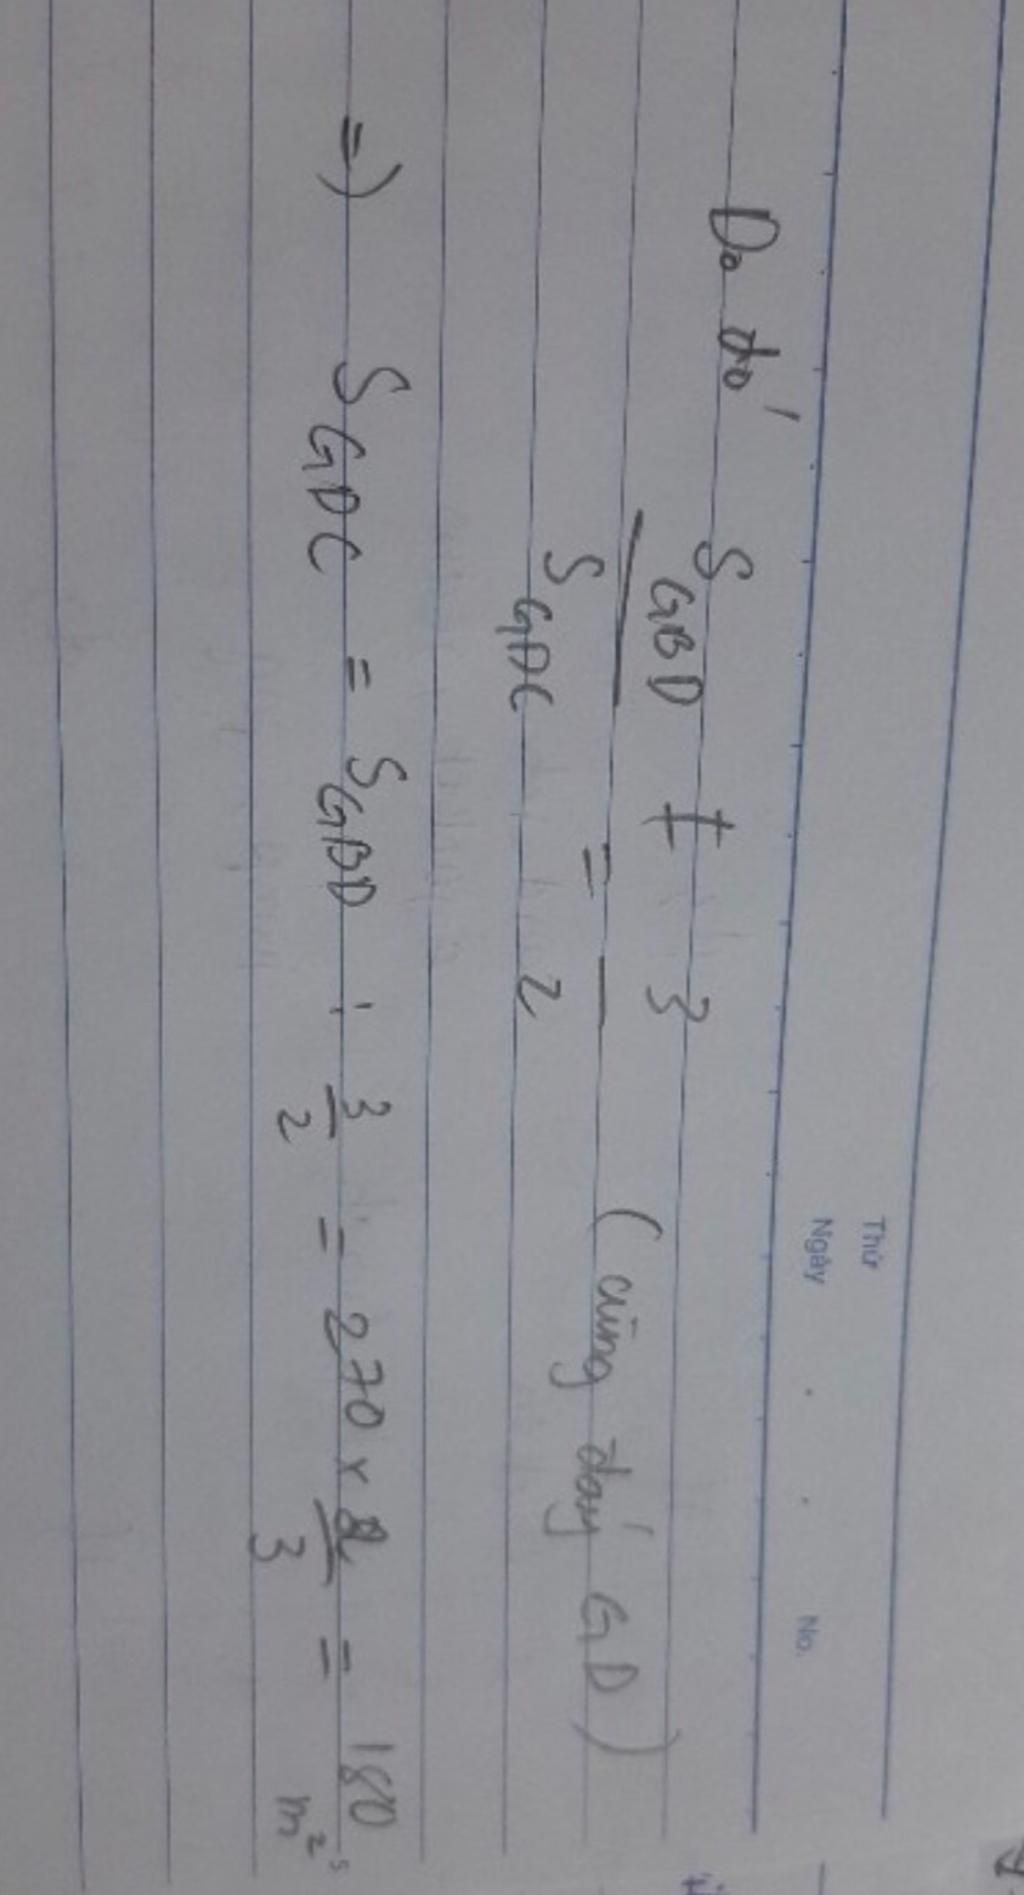 Thứ
Ngày . . No.
Do đó S_GBD / S_GDC = 3 / 2 (cùng đáy GD)
=) S_GDC = S_GBD : 3/2 = 270 x 2/3 = 180 m²